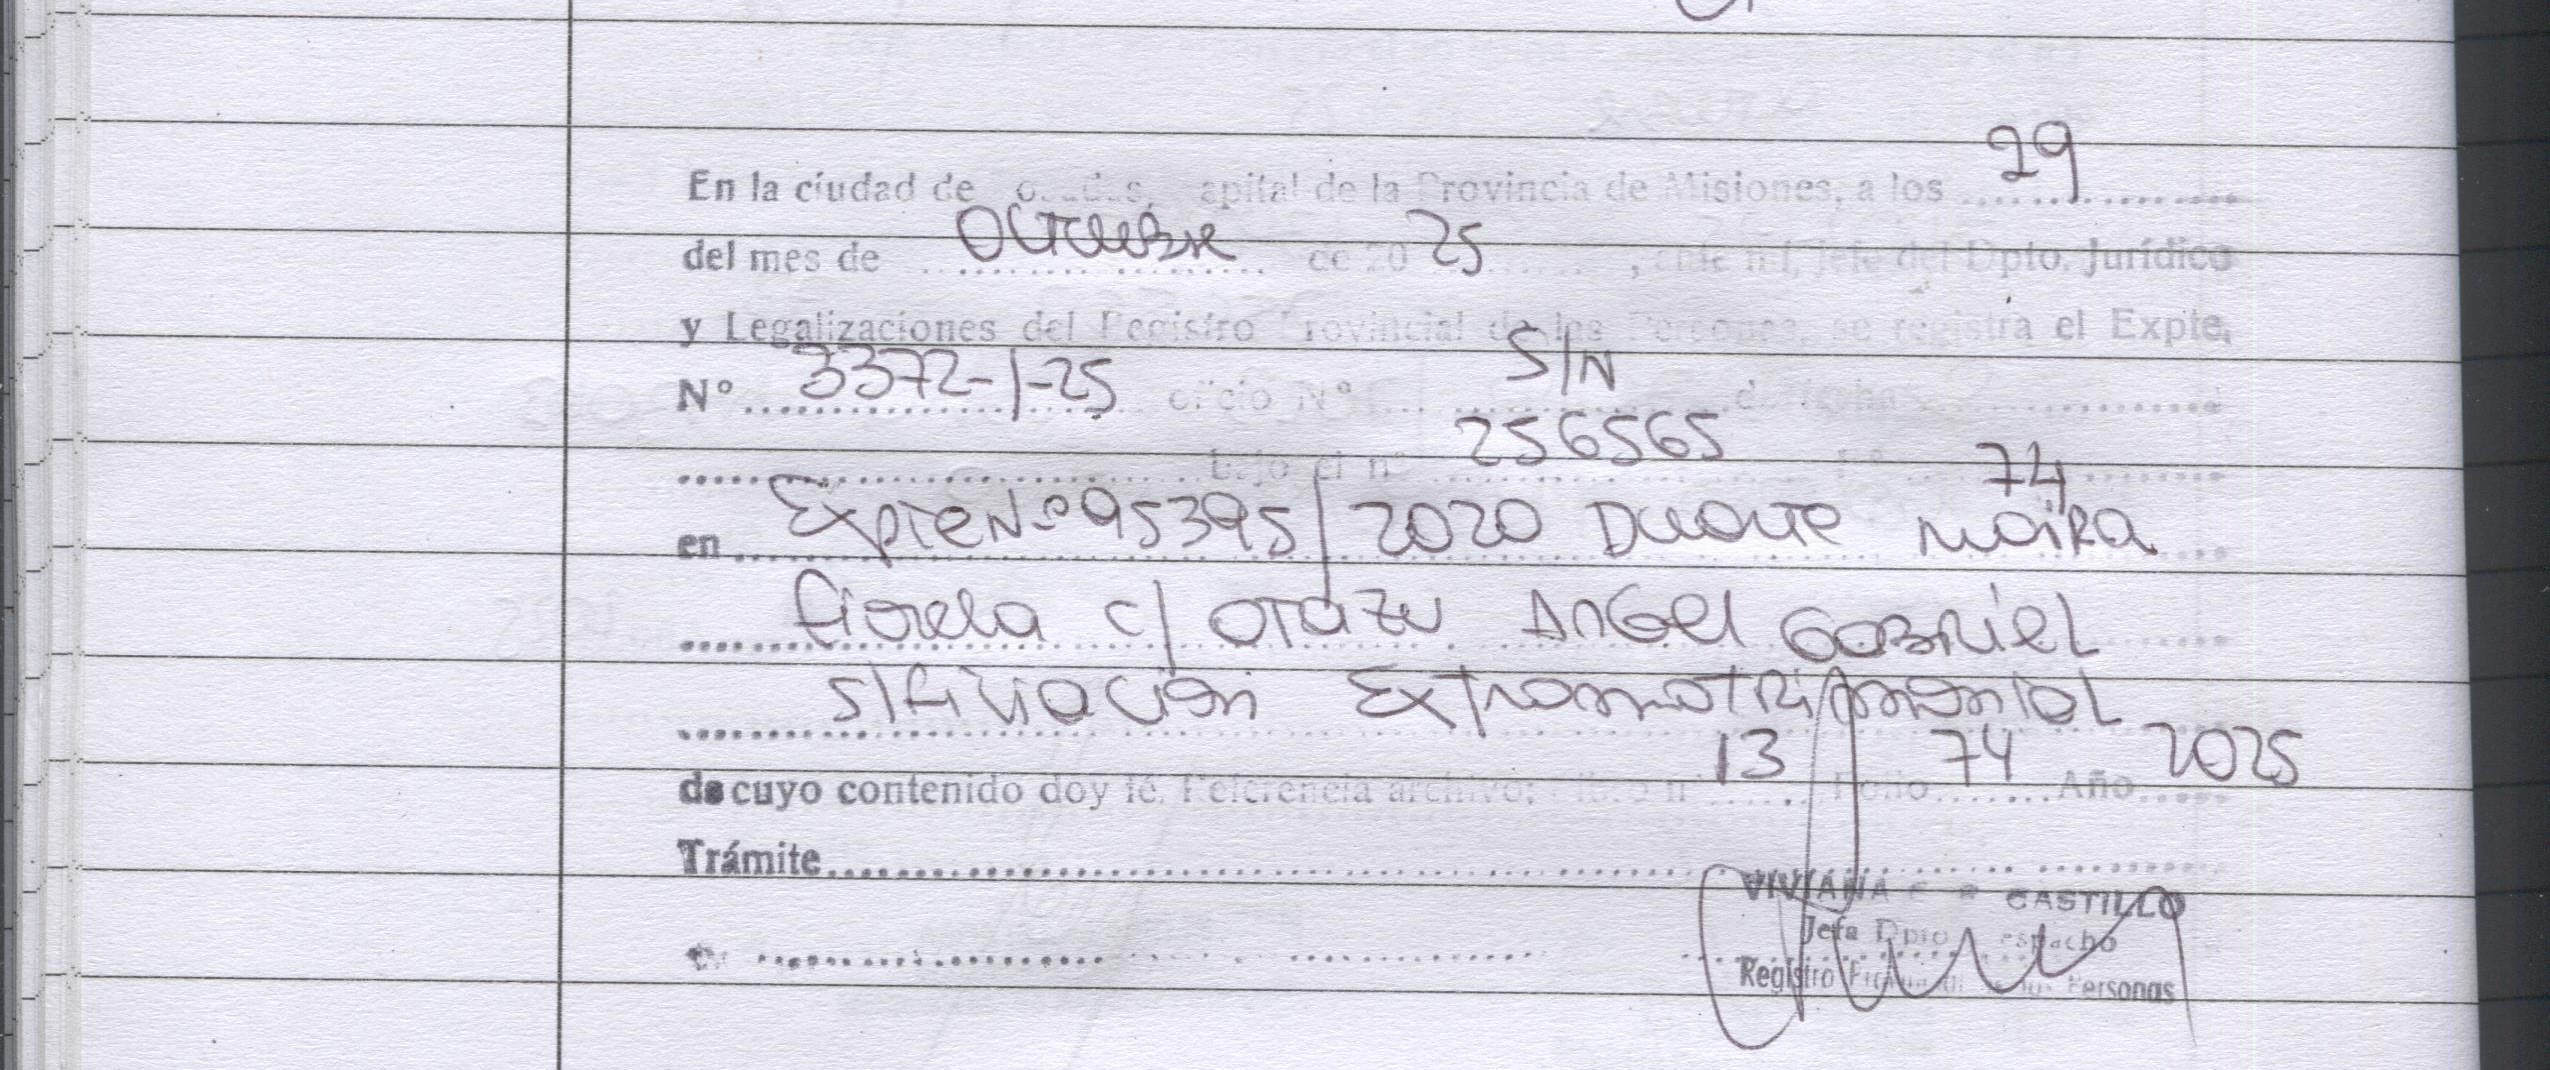 En la ciudad de Posadas, Capital de la Provincia de Misiones, a los 29
del mes de OCTUBRE de 20 25, ante mí, Jefe del Dpto. Jurídico
y Legalizaciones del Registro Provincial de las Personas, se registra el Expte.
Nº 3372-1-25 oficio Nº S/N de fecha
bajo el nº 256565 Fº 74
en Expte Nº 95395/2020 Duarte Maira
fiorela c/ OTAZU ANGel GABRIEL
s/filiación Extramatrimonial
de cuyo contenido doy fé. Referencia archivo: libro nº 13 Folio 74 Año 2025
Trámite
VIVIANA CASTILLO
Jefa Dpto. Despacho
Registro Provincial de las Personas